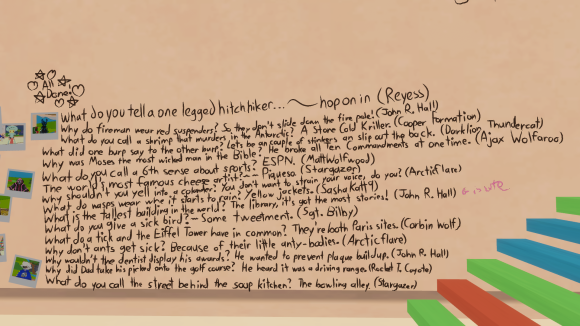 All Done!
What do you tell a one legged hitchhiker... hop on in (Reyess)
Why do fireman wear red suspenders? So they don't slide down the fire pole! (John R. Hall)
What do you call a shrimp that murders in the Antarctic? A Stone Cold Kriller. (Cooper Formation)
What did one burp say to the other burp? Lets be couple of stinkers an slip out the back. (Dorklion Thundercat)
Why was Moses the most wicked man in the Bible? He broke all Ten Commandments at one time. (Ajax Wolfaroo)
What do you call a 6th sense about sports? ESPN. (Matt Wolfwood)
The world's most famous cheese artist-- Piqueso (Stargazor)
Why shouldn't you yell into a colander? You don't want to strain your voice, do you? (Arcticflare)
What do wasps wear when it starts to rain? Yellow jackets. (SashaKatt9)
What is the tallest building in the world? The library, it's got the most stories! (John R. Hall)
What do you give a sick bird? - Some tweetment. (Sgt. Bilby)
What do a tick and the Eiffel Tower have in common? They're both Paris sites. (Corbin Wolf)
Why don't ants get sick? Because of their little anty-bodies. (Arcticflare)
Why wouldn't the dentist display his awards? He wanted to prevent plaque buildup. (John R. Hall)
Why did Dad take his pickup onto the golf course? He heard it was a driving range. (Rocket T. Coyote)
What do you call the street behind the soup kitchen? The bowling alley. (Stargazor)